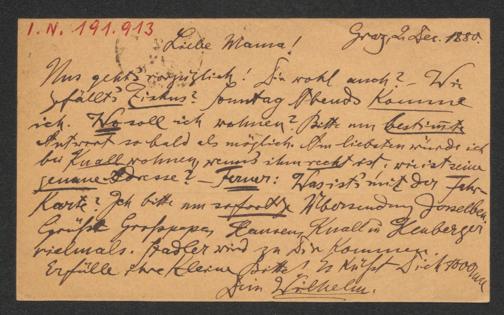 I. N. 191.913
Graz, 2. Dec. 1880.
Liebe Mama!
Uns geht's vorzüglich! Dir wohl auch? – Wie
gefällts Ziskus? Sonntag Abends komme
ich. Wo soll ich wohnen? Bitte um bestimmte
Antwort so bald als möglich. Am liebsten würde ich
bei Knall wohnen, wenns ihm recht ist, wie ist seine
genaue Adresse? – Ferner: Was ist's mit der Fahr-
Karte? Ich bitte um sofortige Übersendung derselben.
Grüße Grosspapa, Hausens, Knall u. Heuberger
vielmals. Stadler wird zu Dir kommen.
Erfülle ihre kleine Bitte! Es küßt Dich 1000 mal
Dein Wilhelm.